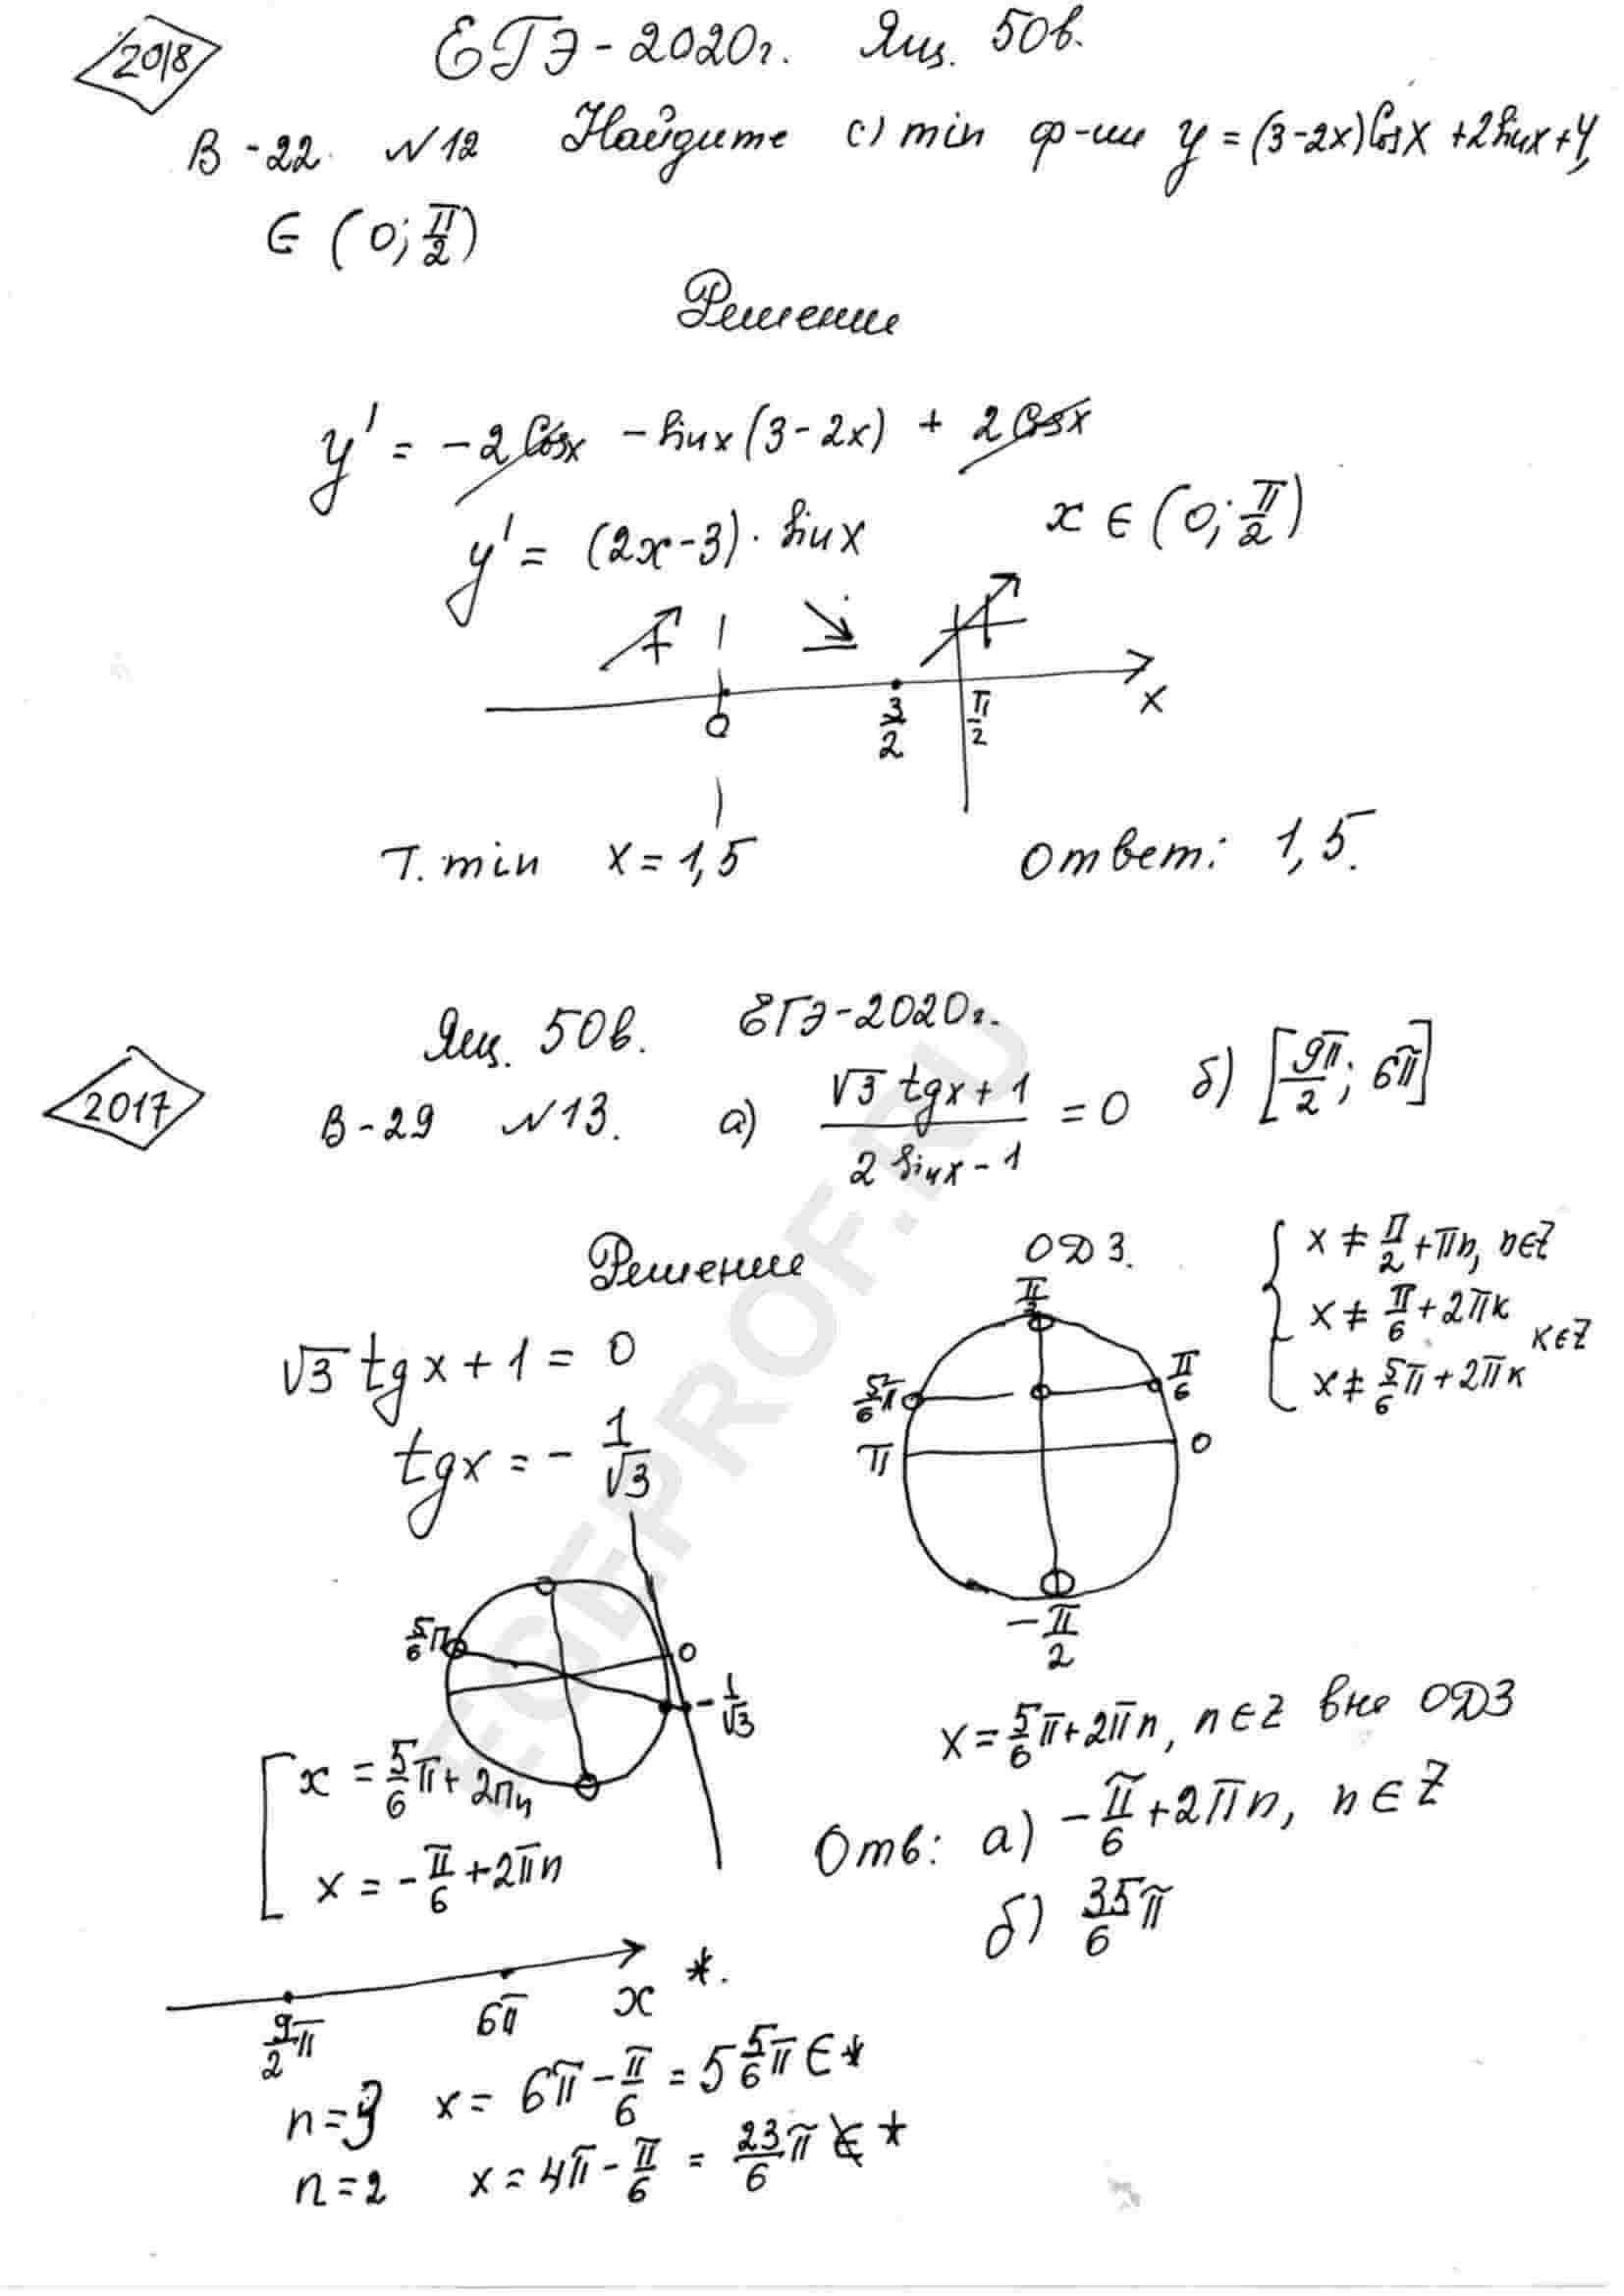 2018
ЕГЭ-2020г. Ящ. 50в.
В-22 №12 Найдите (·) min ф-ии y = (3-2x)Cosx + 2Sinx + 4,
∈ (0; π/2)
Решение
y' = -2Cosx - Sinx(3-2x) + 2Cosx
y' = (2x-3)·Sinx x ∈ (0; π/2)
+ - +
0 3/2 π/2 x
Т. min x = 1,5 Ответ: 1,5.
Ящ. 50в. ЕГЭ-2020г.
2017
В-29 №13. а) (√3 tgx + 1)/(2 Sinx - 1) = 0 б) [9π/2; 6π]
Решение ОДЗ.
x ≠ π/2 + πn, n∈Z
x ≠ π/6 + 2πk
x ≠ 5/6π + 2πk k∈Z
√3 tgx + 1 = 0
tgx = - 1/√3
π/2
5/6π π/6
π 0
-π/2
5/6π 0
-1/√3
x = 5/6π + 2πn, n∈Z вне ОДЗ
x = 5/6π + 2πn
x = -π/6 + 2πn
Отв: а) -π/6 + 2πn, n∈Z
б) 35/6π
9/2π 6π x *.
n=3 x = 6π - π/6 = 5 5/6π ∈ *
n=2 x = 4π - π/6 = 23/6π ∉ *
EGEPROF.RU